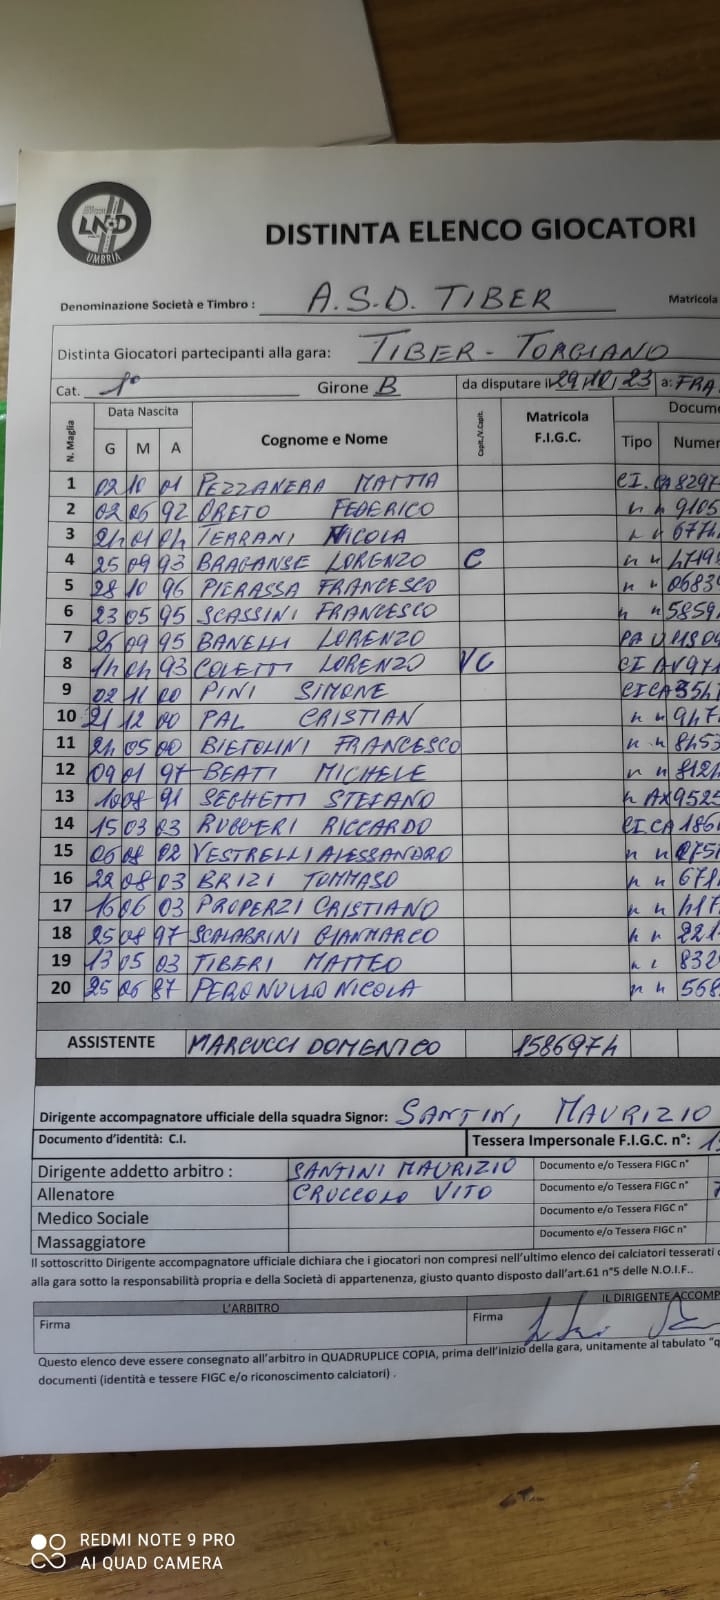 LND
UMBRIA
DISTINTA ELENCO GIOCATORI
Denominazione Società e Timbro : A.S.D. TIBER Matricola
Distinta Giocatori partecipanti alla gara: TIBER - TORGIANO
Cat. 1° Girone B da disputare il 29/10/23 a: FRA
N. Maglia Data Nascita Cognome e Nome Capit./V.Capit. Matricola F.I.G.C. Docume
G M A Tipo Numer
1 02 10 01 PEZZANERA MATTIA CI. CA 8297
2 02 06 92 ORETO FEDERICO " " 9105
3 24 01 04 TERRANI NICOLA " " 6774
4 25 09 93 BRAGANSE LORENZO C " " 4719
5 28 10 96 PIERASSA FRANCESCO " " 0683
6 23 05 95 SCASSINI FRANCESCO " " 5859
7 26 09 95 BANELLI LORENZO PA U11904
8 14 04 93 COLETTI LORENZO VC CI AV971
9 02 11 00 PINI SIMONE CI CA 354
10 21 12 00 PAL CRISTIAN " " 947
11 24 05 00 BIETOLINI FRANCESCO " " 8453
12 09 01 97 BEATI MICHELE " " 8124
13 10 08 91 SEGHETTI STEFANO " AX9525
14 15 03 03 RUGGERI RICCARDO CI CA 186
15 06 08 02 VESTRELLI ALESSANDRO " " 075
16 22 08 03 BRIZI TOMMASO " " 671
17 16 06 03 PROPERZI CRISTIANO " " 417
18 25 08 97 SCALABRINI GIANMARCO " " 221
19 13 05 03 TIBERI MATTEO " " 832
20 25 06 87 PERONULLO NICOLA " " 568
ASSISTENTE MARCUCCI DOMENICO 1586974
Dirigente accompagnatore ufficiale della squadra Signor: SANTINI MAURIZIO
Documento d'identità: C.I. Tessera Impersonale F.I.G.C. n°:
Dirigente addetto arbitro : SANTINI MAURIZIO Documento e/o Tessera FIGC n°
Allenatore CRUCCOLO VITO Documento e/o Tessera FIGC n°
Medico Sociale Documento e/o Tessera FIGC n°
Massaggiatore Documento e/o Tessera FIGC n°
Il sottoscritto Dirigente accompagnatore ufficiale dichiara che i giocatori non compresi nell'ultimo elenco dei calciatori tesserati
alla gara sotto la responsabilità propria e della Società di appartenenza, giusto quanto disposto dall'art.61 n°5 delle N.O.I.F..
L'ARBITRO IL DIRIGENTE ACCOMP
Firma Firma
Questo elenco deve essere consegnato all'arbitro in QUADRUPLICE COPIA, prima dell'inizio della gara, unitamente al tabulato "q
documenti (identità e tessere FIGC e/o riconoscimento calciatori) .
REDMI NOTE 9 PRO
AI QUAD CAMERA